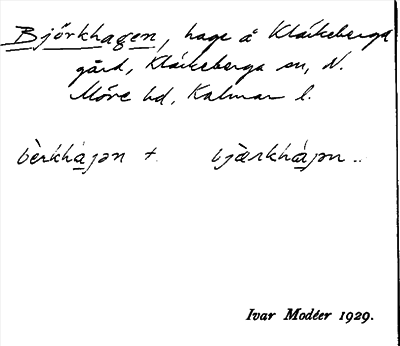 Björkhagen, hage å Kläckeberga
gård, Kläckeberga sn, N.
Möre hd, Kalmar l.
bèrkhájən +. bjærkhájən ..
Ivar Modéer 1929.